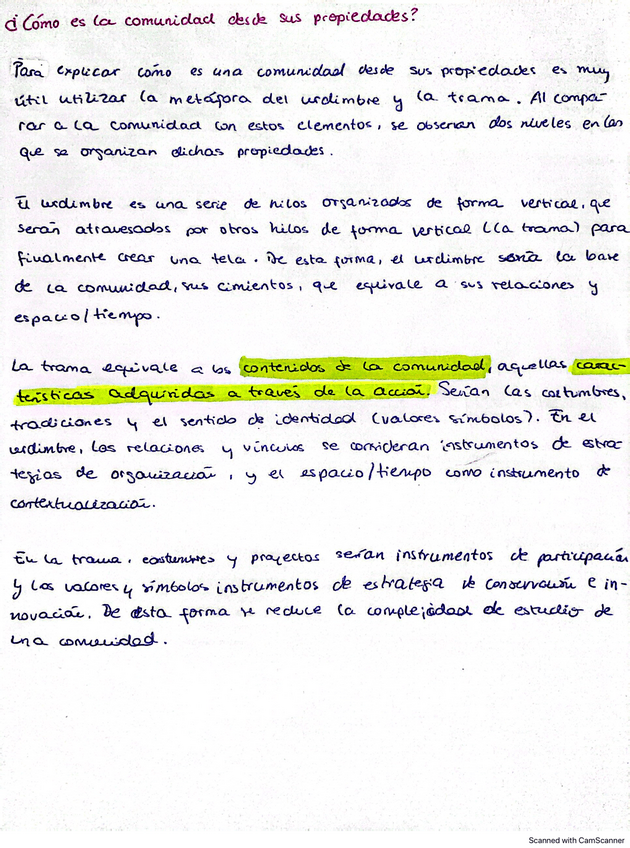 ¿Cómo es la comunidad desde sus propiedades?
Para explicar cómo es una comunidad desde sus propiedades es muy
útil utilizar la metáfora del urdimbre y la trama. Al compa-
rar a la comunidad con estos elementos, se observan dos niveles en los
que se organizan dichas propiedades.
El urdimbre es una serie de hilos organizados de forma vertical, que
serán atravesados por otros hilos de forma vertical (la trama) para
finalmente crear una tela. De esta forma, el urdimbre sería la base
de la comunidad, sus cimientos, que equivale a sus relaciones y
espacio/tiempo.
La trama equivale a los contenidos de la comunidad, aquellas carac-
terísticas adquiridas a través de la acción. Serían las costumbres,
tradiciones y el sentido de identidad (valores símbolos). En el
urdimbre, las relaciones y vínculos se consideran instrumentos de estra-
tegias de organización, y el espacio/tiempo como instrumento de
contextualización.
En la trama, costumbres y proyectos serían instrumentos de participación
y los valores y símbolos instrumentos de estrategia de conservación e in-
novación. De esta forma se reduce la complejidad de estudio de
una comunidad.
Scanned with CamScanner